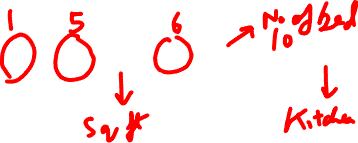 1 5 6
No of bed
10
Sqft
Kitchen